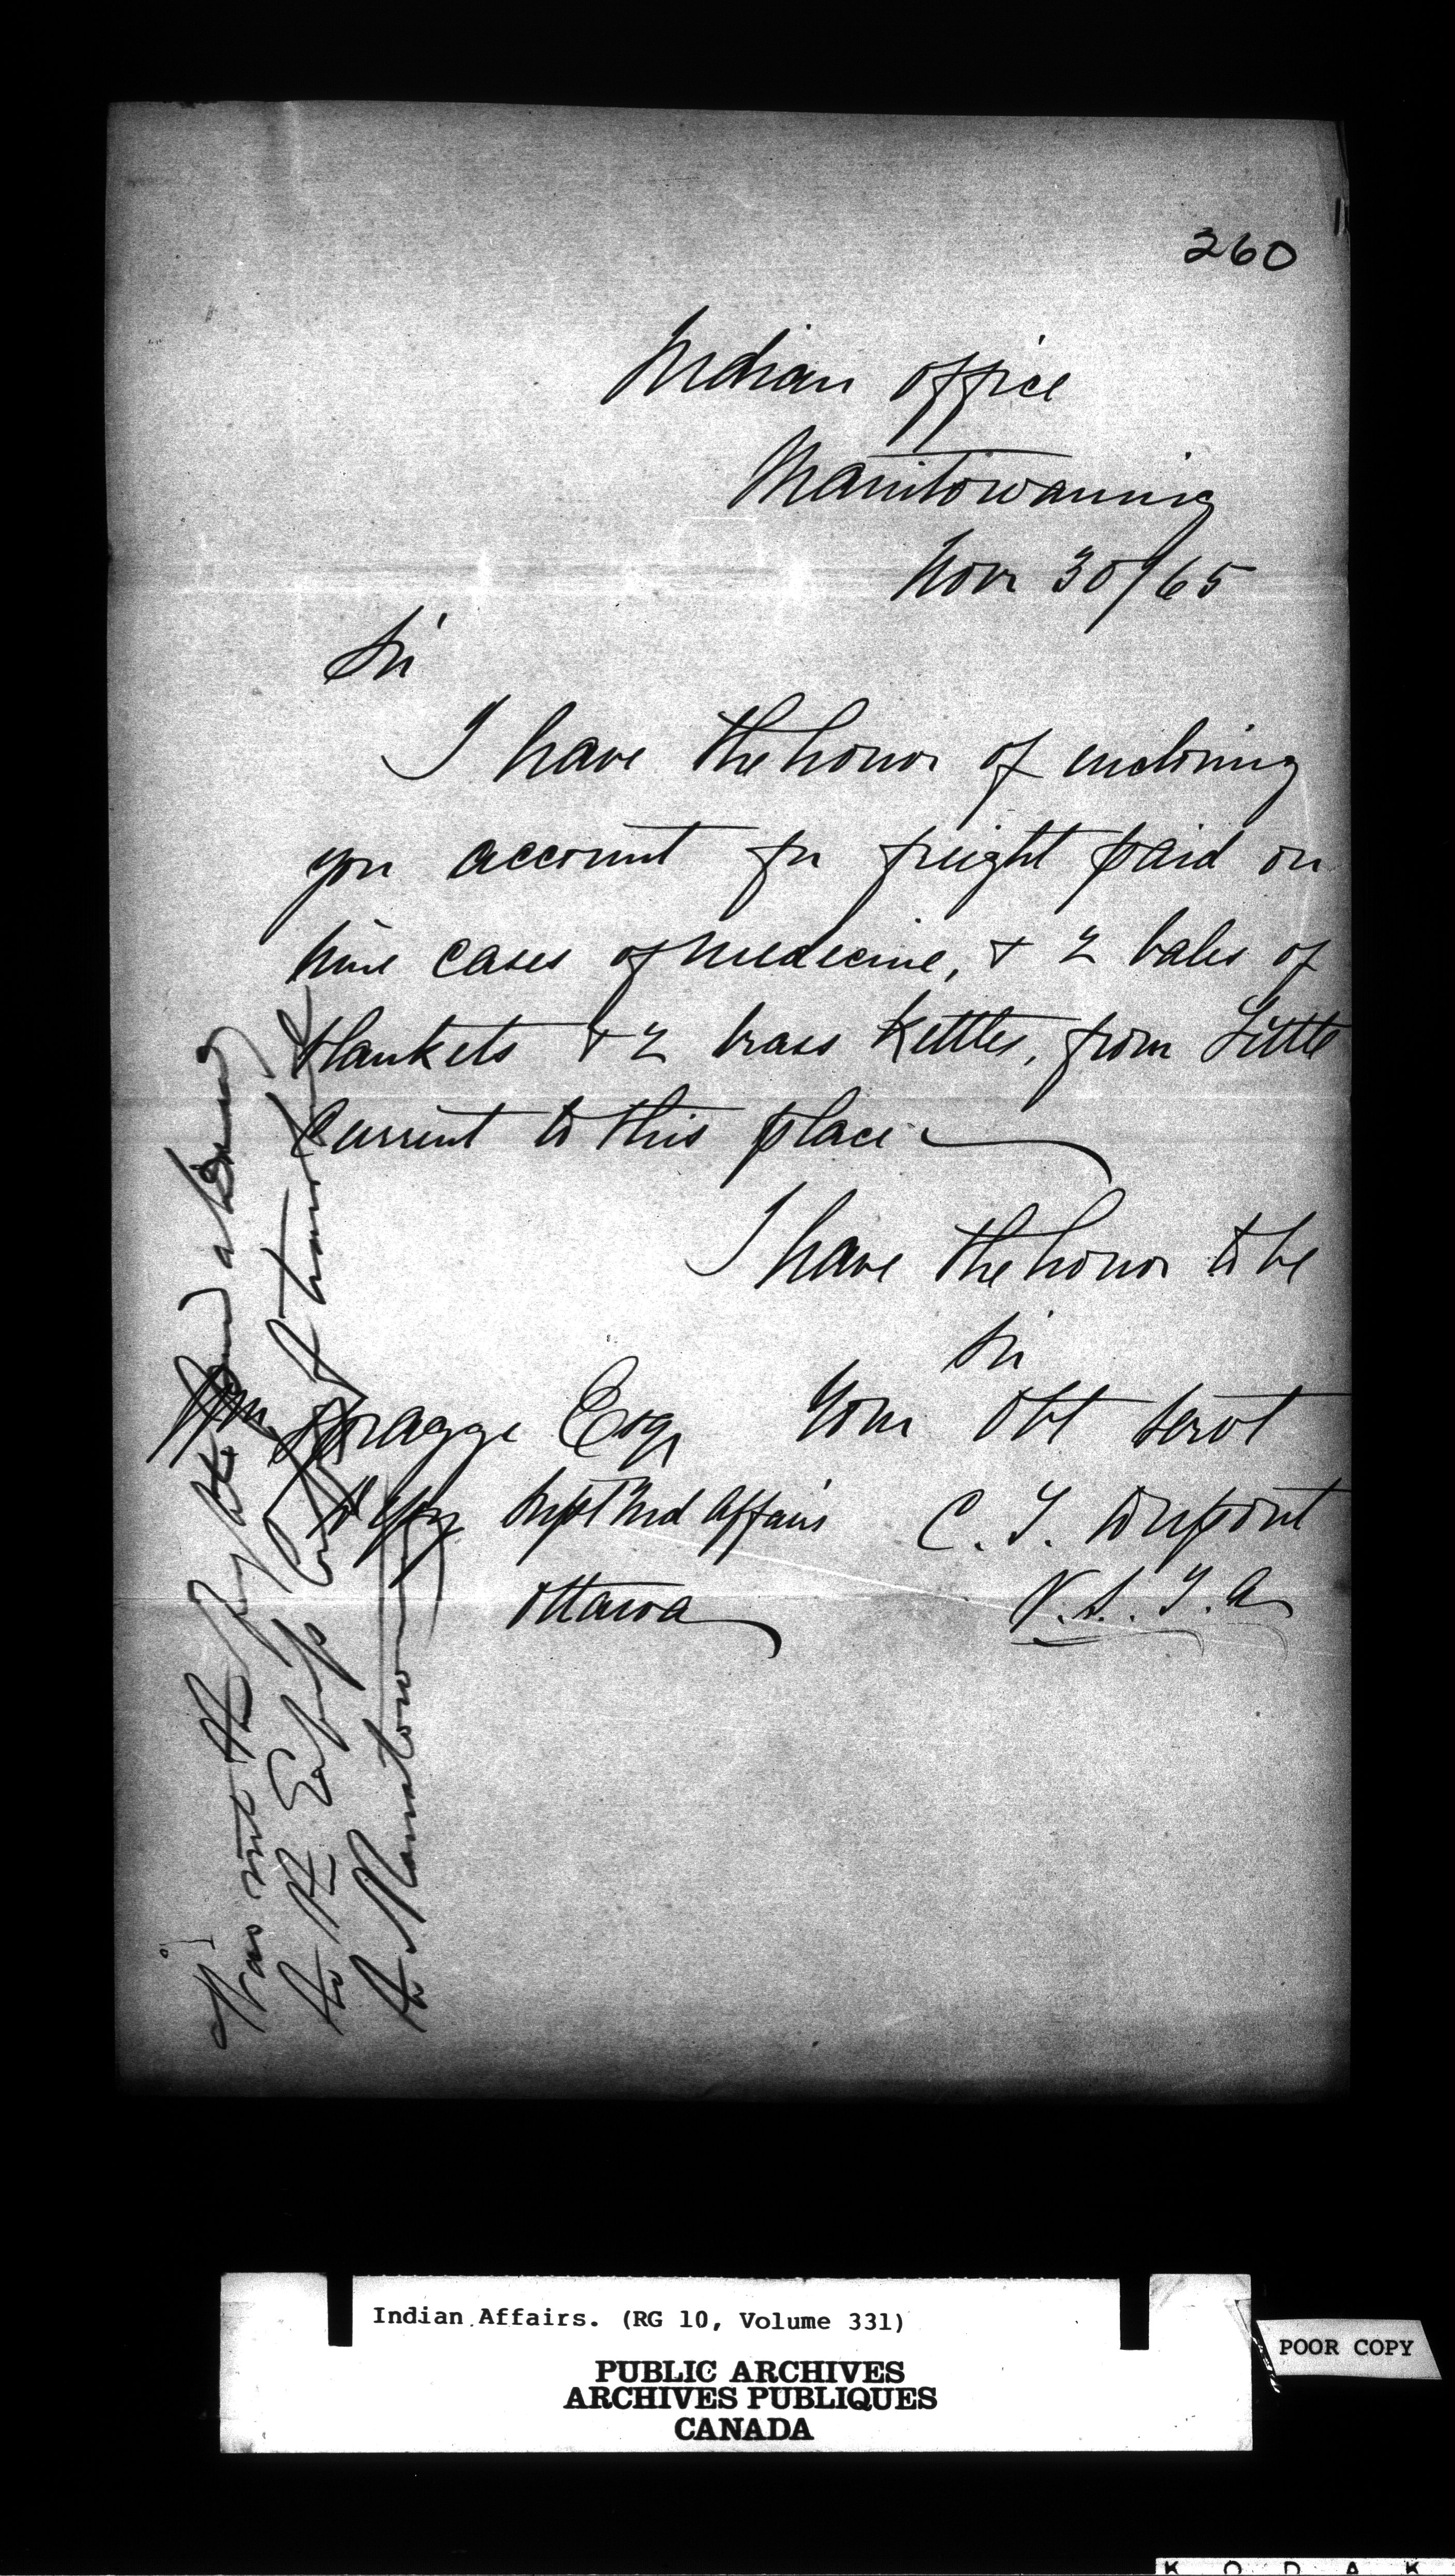 260
Indian Office
Manitowaning
Novr 30/65
Sir
I have the honor of enclosing
you account for freight paid on
nine cases of medicine, & 2 bales of
blankets & 2 brass Kettles, from Little
Current to this place
I have the honor to be
Sir
Your Obt Servt
C. T. Dupont
V. S. I. A
Wm Spragge Esqr
Depy Supt Ind Affairs
Ottawa
Was not the
to the
to Manitowaning
Indian Affairs. (RG 10, Volume 331)
PUBLIC ARCHIVES
ARCHIVES PUBLIQUES
CANADA
POOR COPY
KODAK